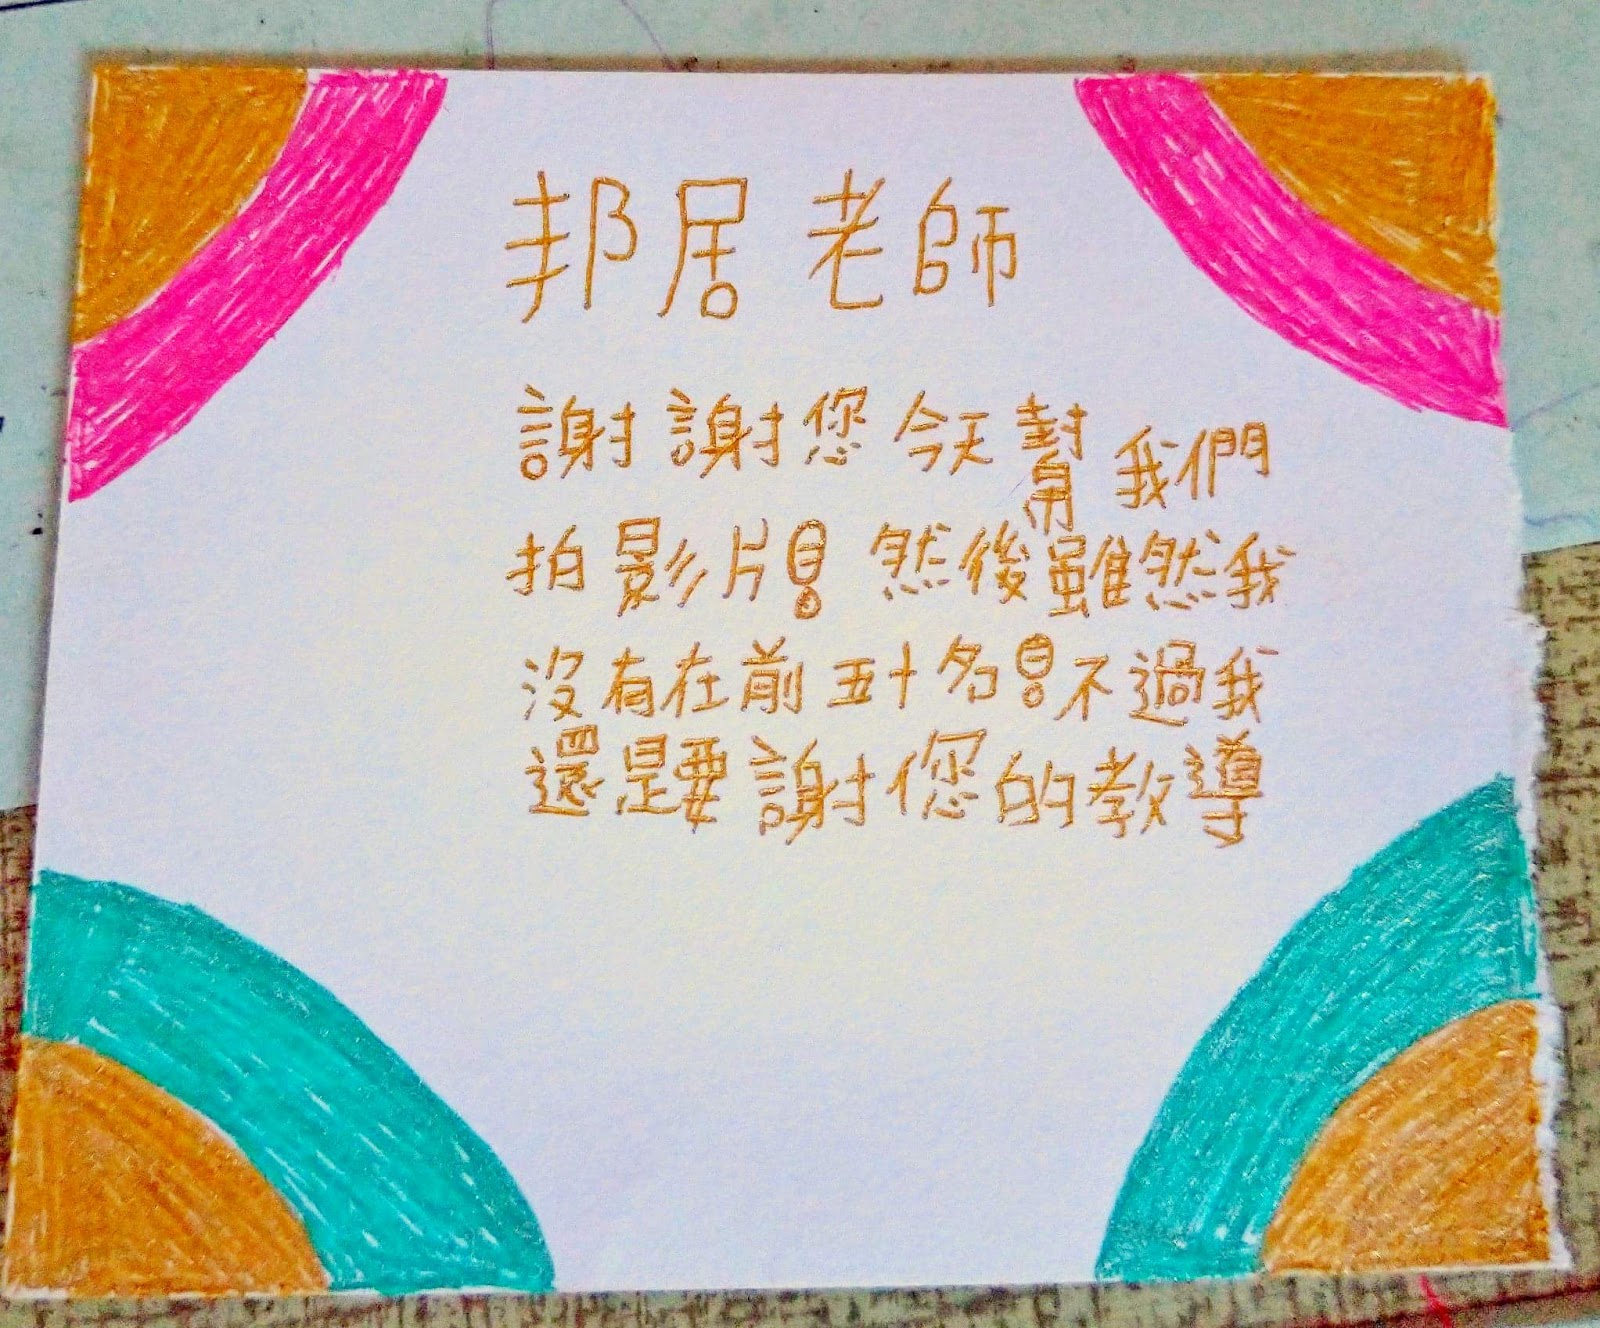 邦居老師
謝謝您今天幫我們
拍影片！然後雖然我
沒有在前五十名！不過我
還是要謝您的教導